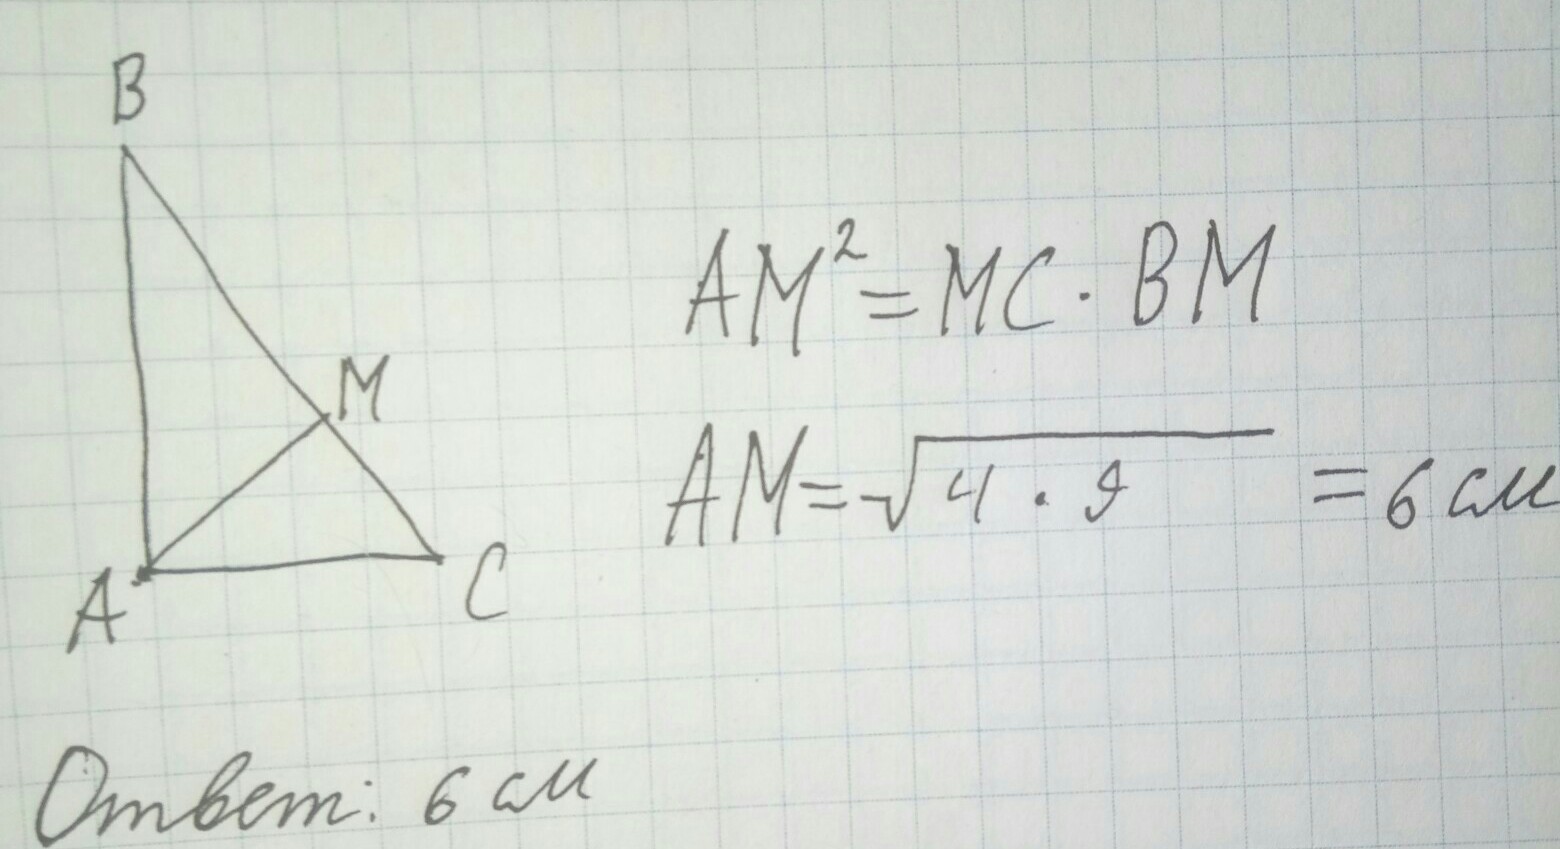 B
M
A
C
AM² = MC · BM
AM = √4 · 9 = 6 см
Ответ: 6 см